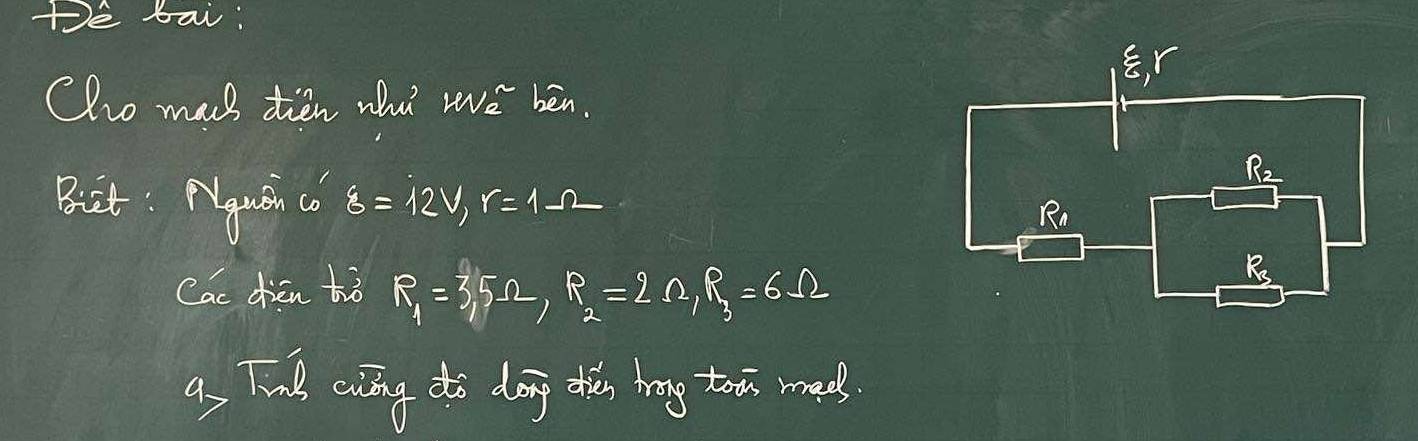 Đề bài:
Cho mạch điện như hình vẽ bên.
ξ, r
R₁
R₂
R₃
Biết: Nguồn có ξ = 12V, r = 1Ω
Các điện trở R₁ = 3,5Ω, R₂ = 2Ω, R₃ = 6Ω
a, Tính cường độ dòng điện trong toàn mạch.